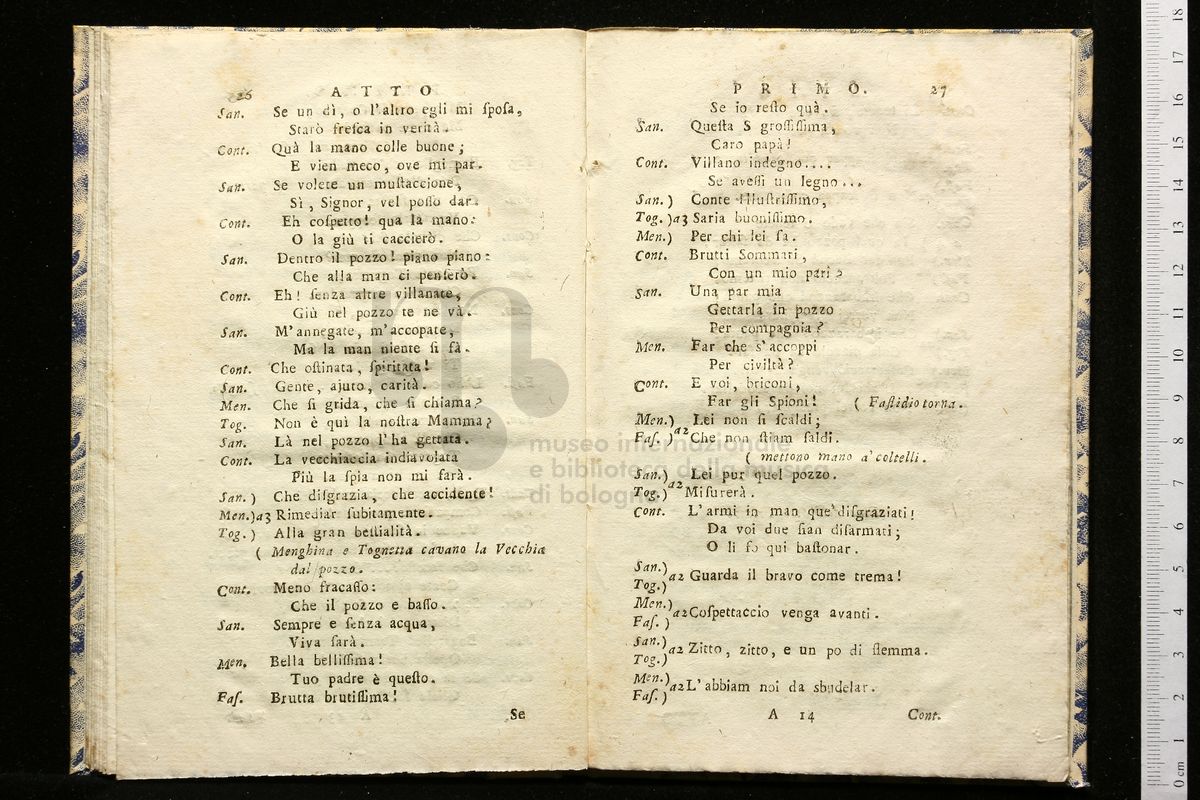 26 ATTO
San. Se un dì, o l'altro egli mi ſpoſa,
Starò freſca in verità.
Cont. Quà la mano colle buone;
E vien meco, ove mi par.
San. Se volete un muſtaccione,
Sì, Signor, vel poſſo dar.
Cont. Eh coſpetto! qua la mano:
O la giù ti caccierò.
San. Dentro il pozzo! piano piano:
Che alla man ci penſerò.
Cont. Eh! ſenza altre villanate,
Giù nel pozzo te ne và.
San. M'annegate, m'accopate,
Ma la man niente ſi fà.
Cont. Che oſtinata, ſpiritata!
San. Gente, ajuto, carità.
Men. Che ſi grida, che ſi chiama?
Tog. Non è quì la noſtra Mamma?
San. Là nel pozzo l'ha gettata.
Cont. La vecchiaccia indiavolata
Più la ſpia non mi farà.
San. ) Che diſgrazia, che accidente!
Men.)a3 Rimediar ſubitamente.
Tog. ) Alla gran beſtialità.
( Menghina e Tognetta cavano la Vecchia
dal pozzo.
Cont. Meno fracaſſo:
Che il pozzo e baſſo.
San. Sempre e ſenza acqua,
Viva ſarà.
Men. Bella belliſſima!
Tuo padre è queſto.
Faſ. Brutta brutiſſima!
Se
PRIMO. 27
Se io reſto quà.
San. Queſta S groſſiſſima,
Caro papà!
Cont. Villano indegno....
Se aveſſi un legno...
San. ) Conte Illuſtriſſimo,
Tog. )a3 Saria buoniſſimo.
Men.) Per chi lei ſa.
Cont. Brutti Sommari,
Con un mio pari?
San. Una par mia
Gettarla in pozzo
Per compagnia?
Men. Far che s'accoppi
Per civiltà?
Cont. E voi, briconi,
Far gli Spioni! ( Faſtidio torna.
Men.) Lei non ſi ſcaldi;
Faſ. )a2 Che non ſtiam ſaldi.
( mettono mano a'coltelli.
San.) Lei pur quel pozzo.
Tog.)a2 Miſurerà.
Cont. L'armi in man que' diſgraziati!
Da voi due ſian diſarmati;
O li fo qui baſtonar.
San.)
a2 Guarda il bravo come trema!
Tog.)
Men.)
a2 Coſpettaccio venga avanti.
Faſ. )
San.)
a2 Zitto, zitto, e un po di flemma.
Tog.)
Men.)
a2 L'abbiam noi da sbudelar.
Faſ. )
A 14 Cont.
museo internazionale
e biblioteca della musica
di bologna
0 cm 1 2 3 4 5 6 7 8 9 10 11 12 13 14 15 16 17 18